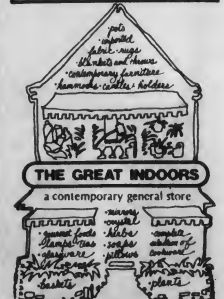 pots
· imported
fabric · rugs
blankets and throws
· contemporary furniture
hammocks · candles · holders
THE GREAT INDOORS
a contemporary general store
· gourmet foods
lamps · teas
glassware
baskets
· mirrors
· mystic
herbs
· soaps
pillows
· complete
selection of
cookware
· plants